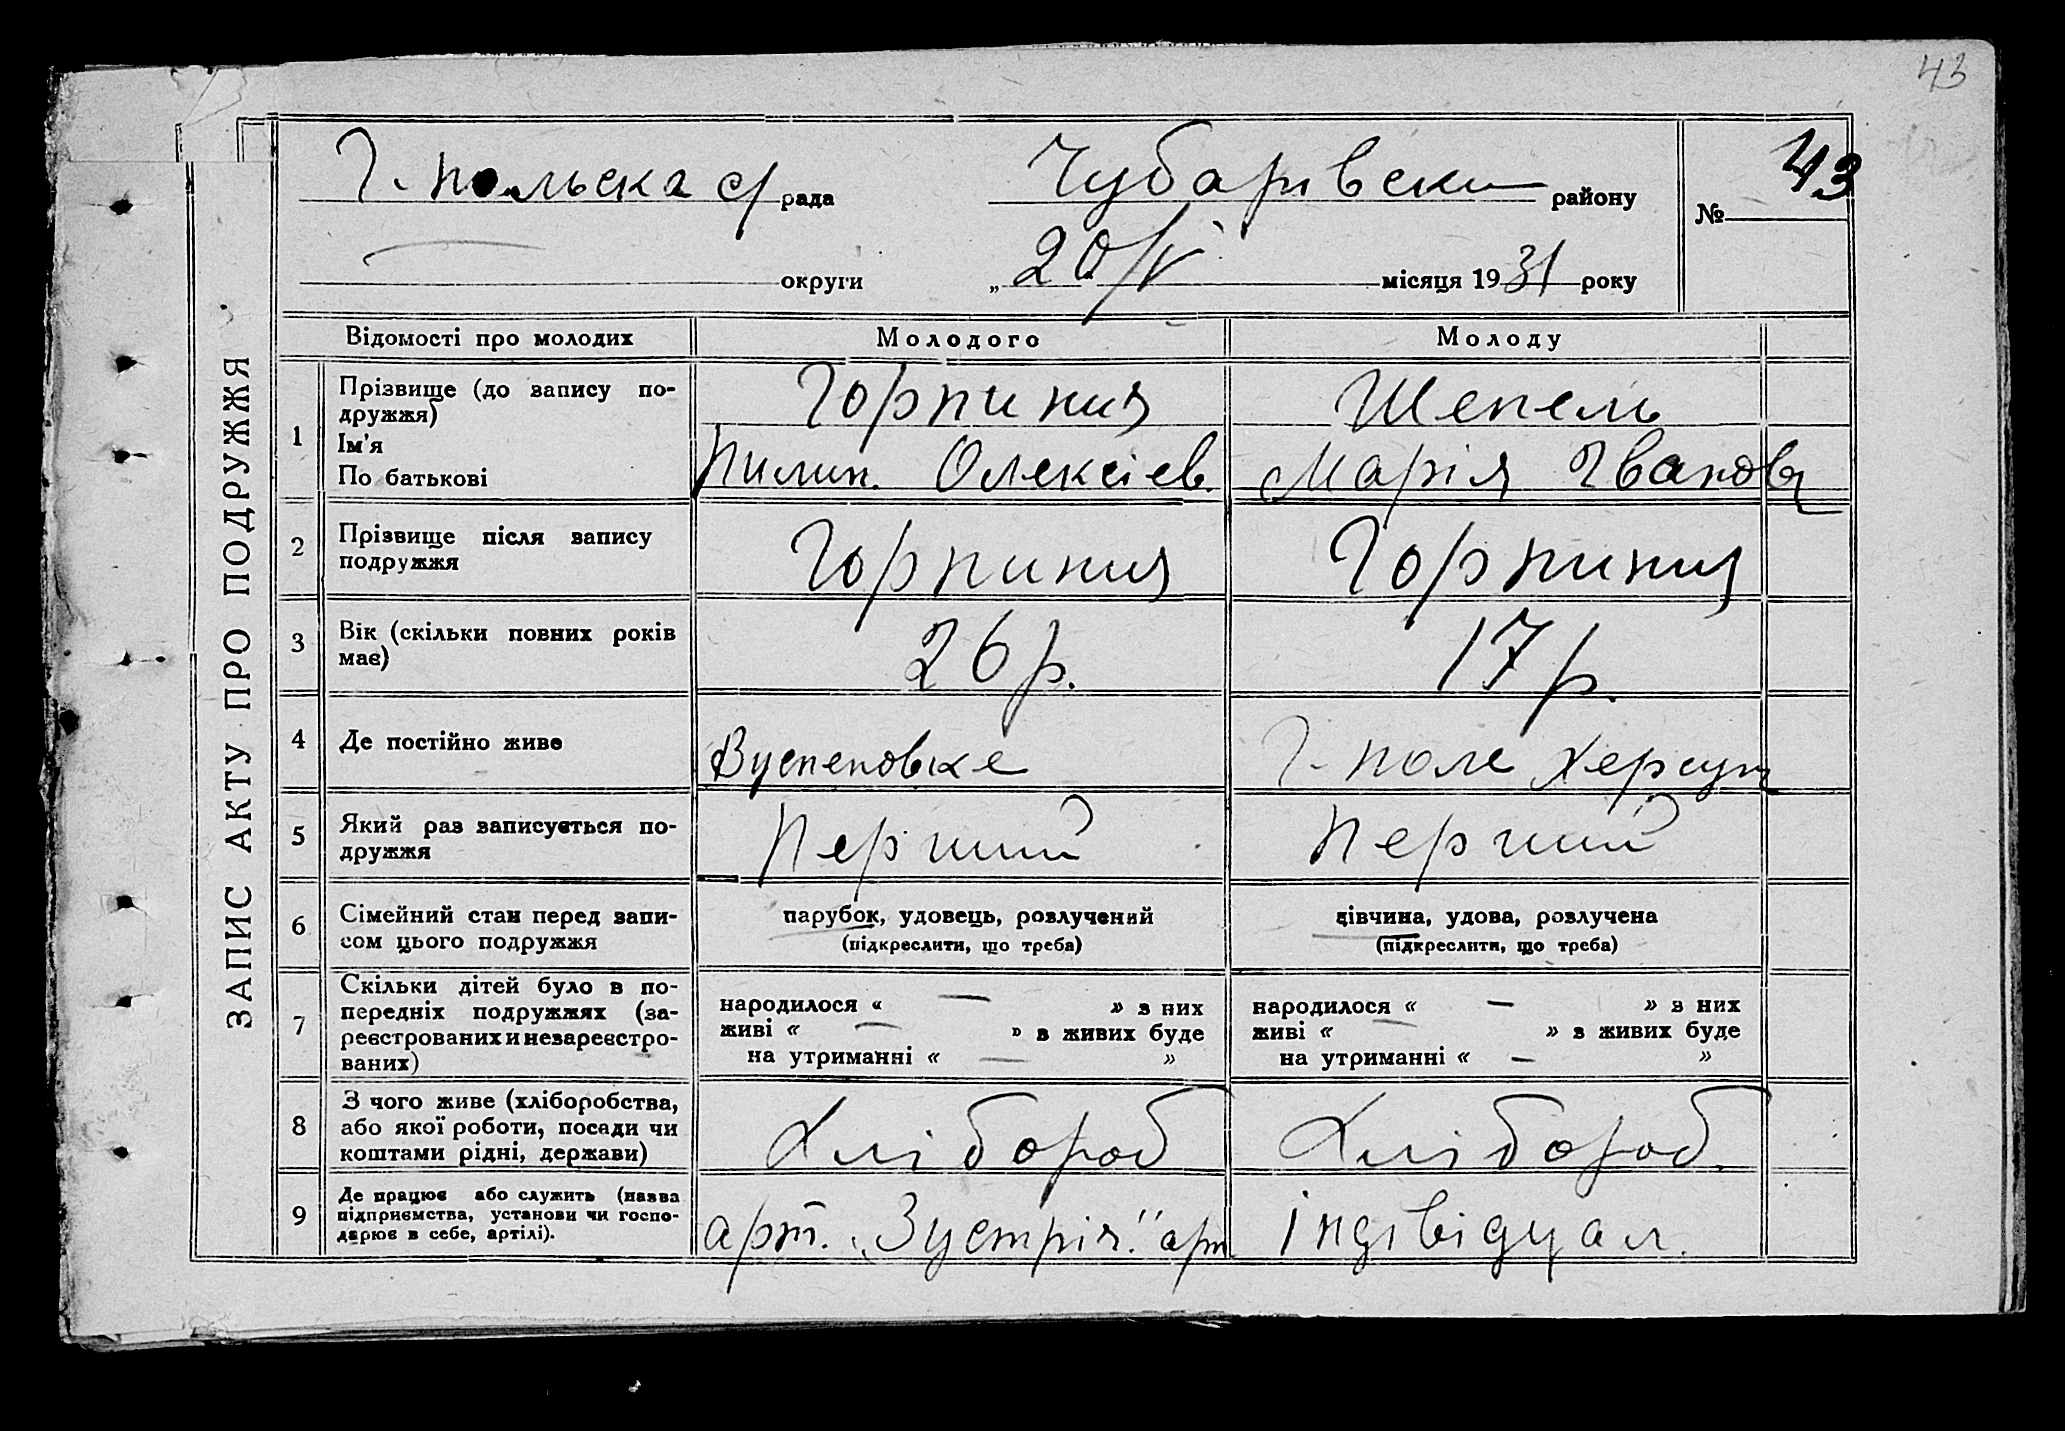 43
Г. польска с/рада Чубарівськи району № 43
округи „20/V місяця 1931 року
ЗАПИС АКТУ ПРО ПОДРУЖЖЯ
Відомості про молодих Молодого Молоду
1 Прізвище (до запису по-
дружжя) Горпинич Шепель
Ім'я
По батькові Пилип. Олексіев. Марія Іванов
2 Прізвище після запису
подружжя Горпинич Горпинич
3 Вік (скільки повних років
має) 26 р. 17 р.
4 Де постійно живе Вуспеновське Г. поле Херсун
5 Який раз записується по-
дружжя Перший Перший
6 Сімейний стан перед запи-
сом цього подружжя
парубок, удовець, розлучений
(підкреслити, що треба)
дівчина, удова, розлучена
(підкреслити, що треба)
7 Скільки дітей було в по-
передніх подружжях (за-
реєстрованих и незареєстро-
ваних)
народилося « — » з них
живі « — » з живих буде
на утриманні « — »
народилося « — » з них
живі « — » з живих буде
на утриманні « — »
8 З чого живе (хліборобства,
або якої роботи, посади чи
коштами рідні, держави) Хлібороб Хлібороб.
9 Де працює або служить (назва
підприємства, установи чи госпо-
дарює в себе, артілі). арт. „Зустрія." арт індівідуал.